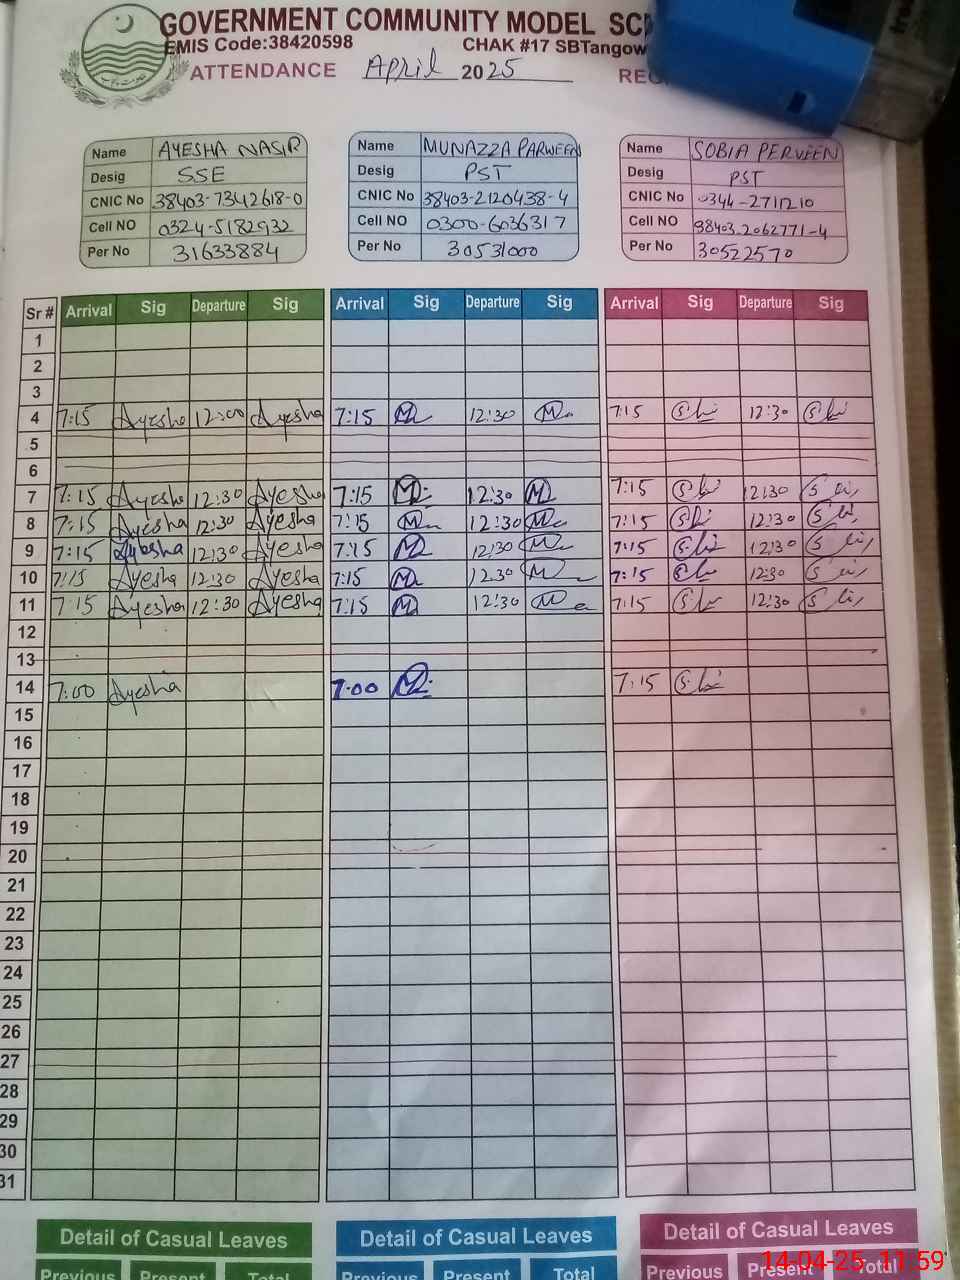 GOVERNMENT COMMUNITY MODEL SC
EMIS Code:38420598 CHAK #17 SBTangow
ATTENDANCE April 2025 RE
Name AYESHA NASIR
Desig SSE
CNIC No 38403-7342618-0
Cell NO 0324-5182932
Per No 31633884
Name MUNAZZA PARWEEN
Desig PST
CNIC No 38403-2120438-4
Cell NO 0300-6036317
Per No 30531000
Name SOBIA PERVEEN
Desig PST
CNIC No 0344-2711210
Cell NO 38403.2062771-4
Per No 30522570
Sr # Arrival Sig Departure Sig Arrival Sig Departure Sig Arrival Sig Departure Sig
1
2
3
4 7:15 Ayesha 12:00 Ayesha 7:15 12:30 7:15 12:30
5
6
7 7:15 Ayesha 12:30 Ayesha 7:15 12:30 7:15 12:30
8 7:15 Ayesha 12:30 Ayesha 7:15 12:30 7:15 12:30
9 7:15 Ayesha 12:30 Ayesha 7:15 12:30 7:15 12:30
10 7:15 Ayesha 12:30 Ayesha 7:15 12.30 7:15 12:30
11 7:15 Ayesha 12:30 Ayesha 7:15 12:30 7:15 12:30
12
13
14 7:00 Ayesha 7:00 7:15
15
16
17
18
19
20
21
22
23
24
25
26
27
28
29
30
31
Detail of Casual Leaves Detail of Casual Leaves Detail of Casual Leaves
Previous Present Total Previous Present Total Previous Present Total
14-04-25 11:59